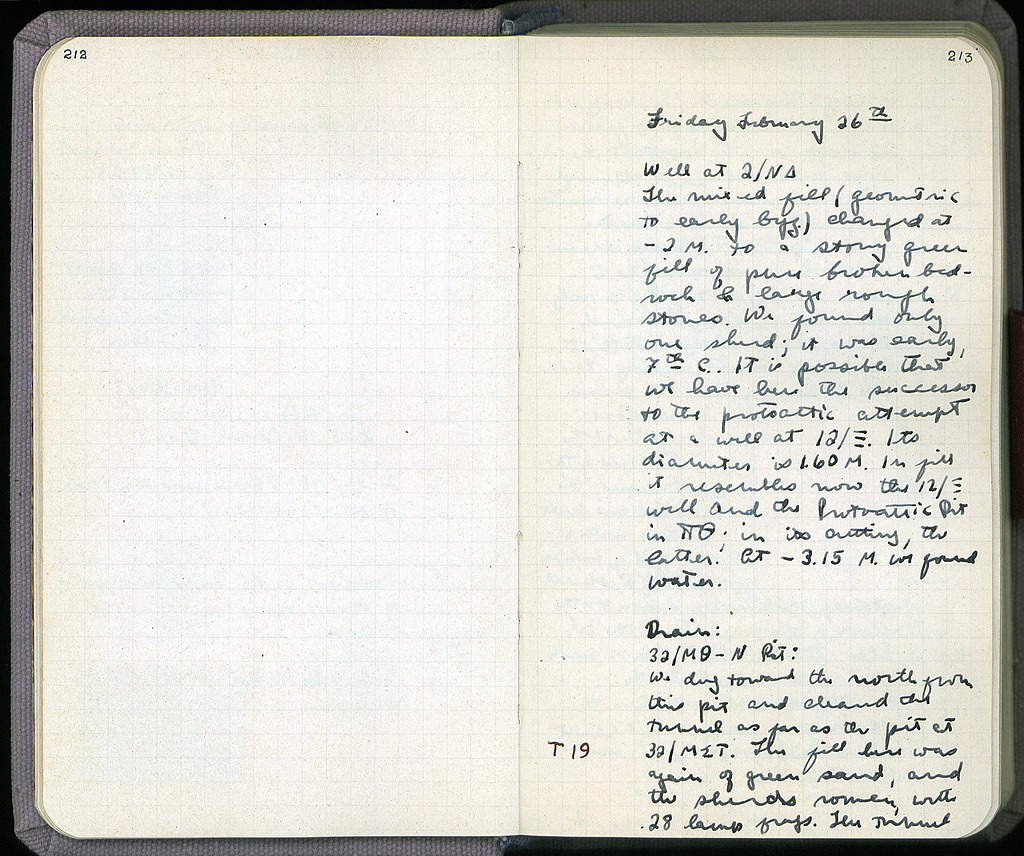 212
213
Friday February 26th
Well at 2/ΝΔ
The mixed fill (geometric
to early byz.) changed at
-2 M. to a stony green
fill of pure broken bed-
rock & large rough
stones. We found only
one sherd; it was early,
7th C.. It is possible that
we have here the successor
to the protoattic attempt
at a well at 12/Ξ. Its
diameter is 1.60 M. In fill
it resembles now the 12/Ξ
well and the Protoattic Pit
in ΠΘ; in its cutting, the
latter. At -3.15 M. we found
water.
Drain:
32/ΜΘ-Ν Pit:
We dug toward the north from
this pit and cleaned the
tunnel as far as the pit at
T 19 32/ΜΣΤ. The fill here was
again of green sand, and
the sherds roman, with
28 lamp frags. The tunnel